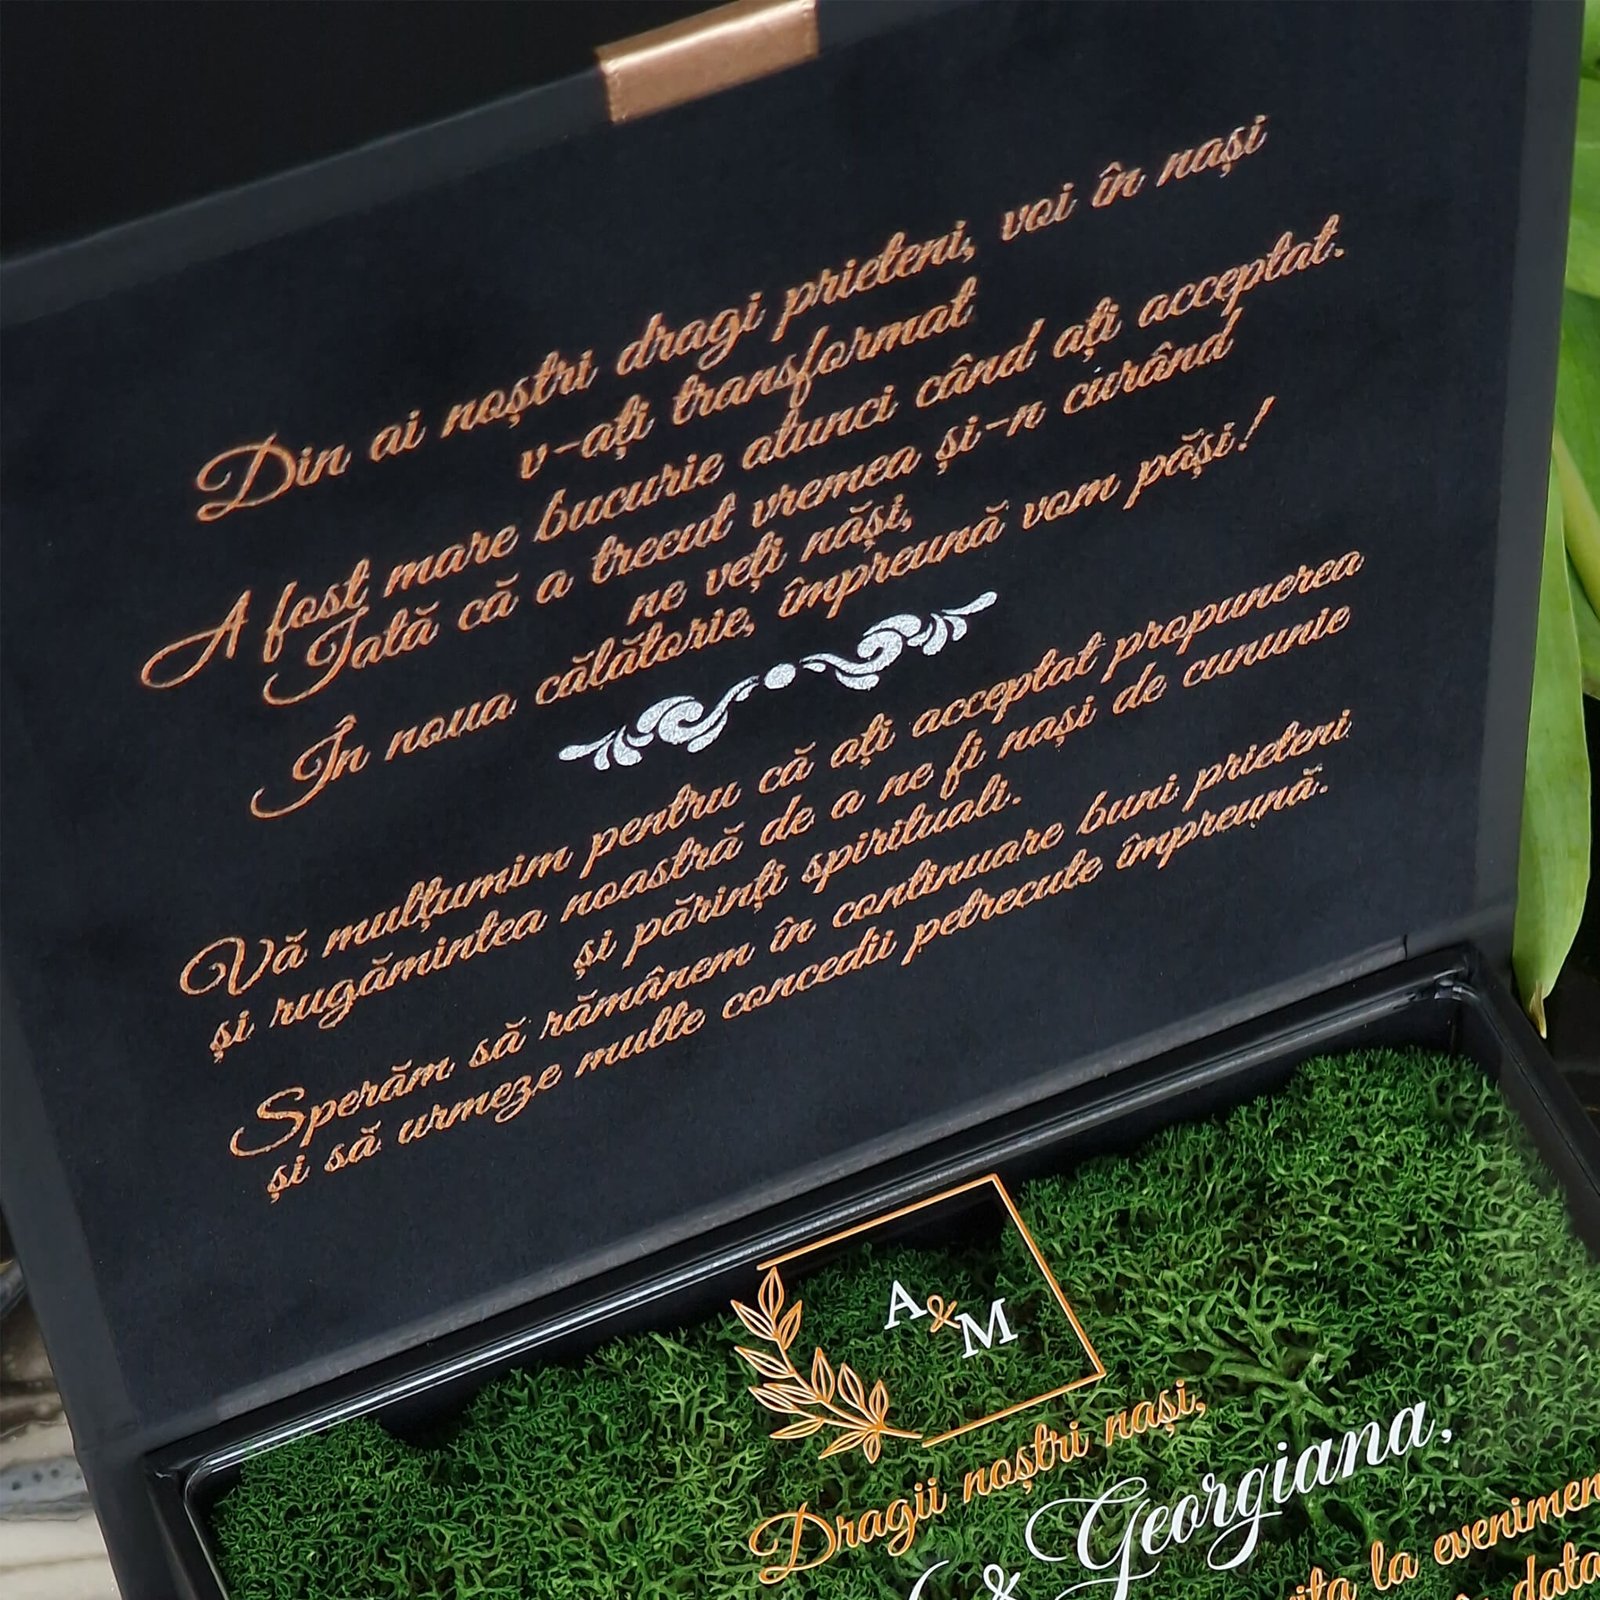 Din ai noștri dragi prieteni, voi în nași
v-ați transformat
A fost mare bucurie atunci când ați acceptat.
Iată că a trecut vremea și-n curând
ne veți năși,
În noua călătorie, împreună vom păși!
Vă mulțumim pentru că ați acceptat propunerea
și rugămintea noastră de a ne fi nași de cununie
și părinți spirituali.
Sperăm să rămânem în continuare buni prieteni
și să urmeze multe concedii petrecute împreună.
A&M
Dragii noștri nași,
& Georgiana,
la
data